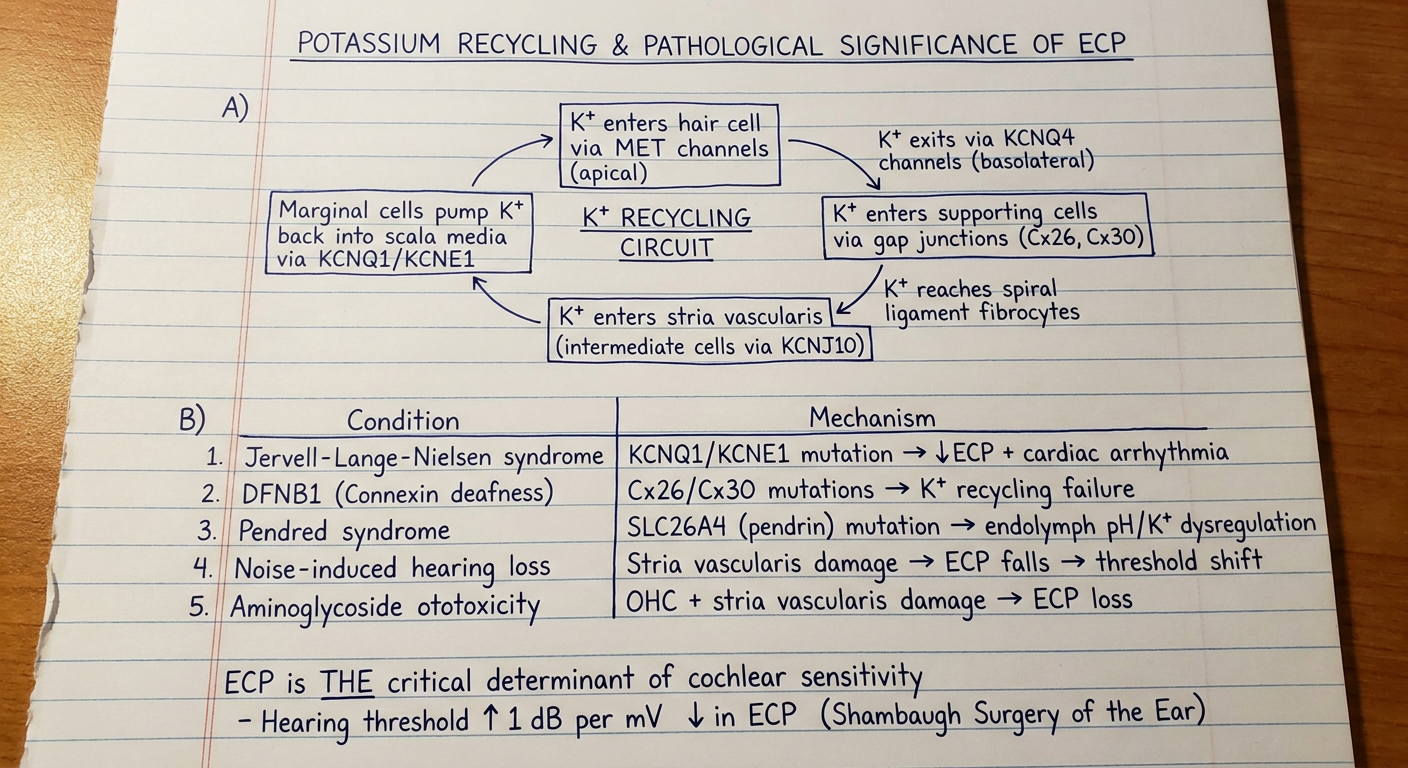 POTASSIUM RECYCLING & PATHOLOGICAL SIGNIFICANCE OF ECP
A)
K⁺ enters hair cell
via MET channels
(apical)
K⁺ exits via KCNQ4
channels (basolateral)
Marginal cells pump K⁺
back into scala media
via KCNQ1/KCNE1
K⁺ RECYCLING
CIRCUIT
K⁺ enters supporting cells
via gap junctions (Cx26, Cx30)
K⁺ reaches spiral
ligament fibrocytes
K⁺ enters stria vascularis
(intermediate cells via KCNJ10)
B) Condition | Mechanism
1. Jervell-Lange-Nielsen syndrome | KCNQ1/KCNE1 mutation → ↓ECP + cardiac arrhythmia
2. DFNB1 (Connexin deafness) | Cx26/Cx30 mutations → K⁺ recycling failure
3. Pendred syndrome | SLC26A4 (pendrin) mutation → endolymph pH/K⁺ dysregulation
4. Noise-induced hearing loss | Stria vascularis damage → ECP falls → threshold shift
5. Aminoglycoside ototoxicity | OHC + stria vascularis damage → ECP loss
ECP is THE critical determinant of cochlear sensitivity
- Hearing threshold ↑ 1 dB per mV ↓ in ECP (Shambaugh Surgery of the Ear)